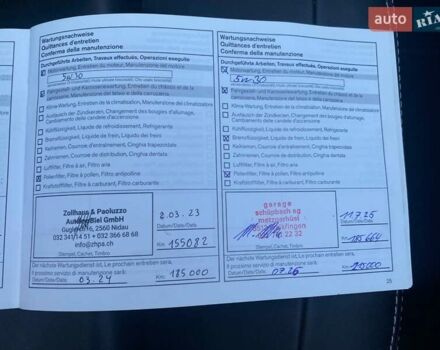 auto RIA
Wartungsnachweise
Quittances d'entretien
Conferma della manutenzione
Durchgeführte Arbeiten, Travaux effectués, Operazioni eseguite
Motorwartung, Entretien du moteur, Manutenzione del motore
5w30
Fahrgestell- und Karosseriewartung, Entretien du châssis et de la carrosserie, Manutenzione del telaio e della carrozzeria
Klima-Wartung, Entretien de la climatisation, Manutenzione del climatizzatore
Austausch der Zündkerzen, Changement des bougies d'allumage, Cambiamento delle candele d'accensione
Kühlflüssigkeit, Liquide de refroidissement, Refrigerante
Bremsflüssigkeit, Liquide de frein, Liquido dei freni
Keilriemen, Courroie d'entraînement, Cinghia trapezoidale
Zahnriemen, Courroie de distribution, Cinghia dentata
Luftfilter, Filtre à air, Filtro aria
Pollenfilter, Filtre à pollen, Filtro antipolline
Kraftstofffilter, Filtre à carburant, Filtro carburante
Zollhaus & Paoluzzo
AutAG Biel GmbH
2560 Nidau
032 341 14 51 + 032 366 68 68
info@zhpa.ch
Stempel, Cachet, Timbro
2.03.23
Datum/Date/Data
Km: 155082
Der nächste Wartungsdienst ist, Le prochain entretien sera,
Il prossimo servizio di manutenzione sarà:
03.24
Datum/Date/Data
Km: 185.000
Wartungsnachweise
Quittances d'entretien
Conferma della manutenzione
Durchgeführte Arbeiten, Travaux effectués, Operazioni eseguite
Motorwartung, Entretien du moteur, Manutenzione del motore
5w30
Fahrgestell- und Karosseriewartung, Entretien du châssis et de la carrosserie, Manutenzione del telaio e della carrozzeria
Klima-Wartung, Entretien de la climatisation, Manutenzione del climatizzatore
Austausch der Zündkerzen, Changement des bougies d'allumage, Cambiamento delle candele d'accensione
Kühlflüssigkeit, Liquide de refroidissement, Refrigerante
Bremsflüssigkeit, Liquide de frein, Liquido dei freni
Keilriemen, Courroie d'entraînement, Cinghia trapezoidale
Zahnriemen, Courroie de distribution, Cinghia dentata
Luftfilter, Filtre à air, Filtro aria
Pollenfilter, Filtre à pollen, Filtro antipolline
Kraftstofffilter, Filtre à carburant, Filtro carburante
garage
schüpbach ag
22 32
Stempel, Cachet, Timbro
11.7.25
Datum/Date/Data
Km: 185 664
Der nächste Wartungsdienst ist, Le prochain entretien sera,
Il prossimo servizio di manutenzione sarà:
07.26
Datum/Date/Data
Km:
25